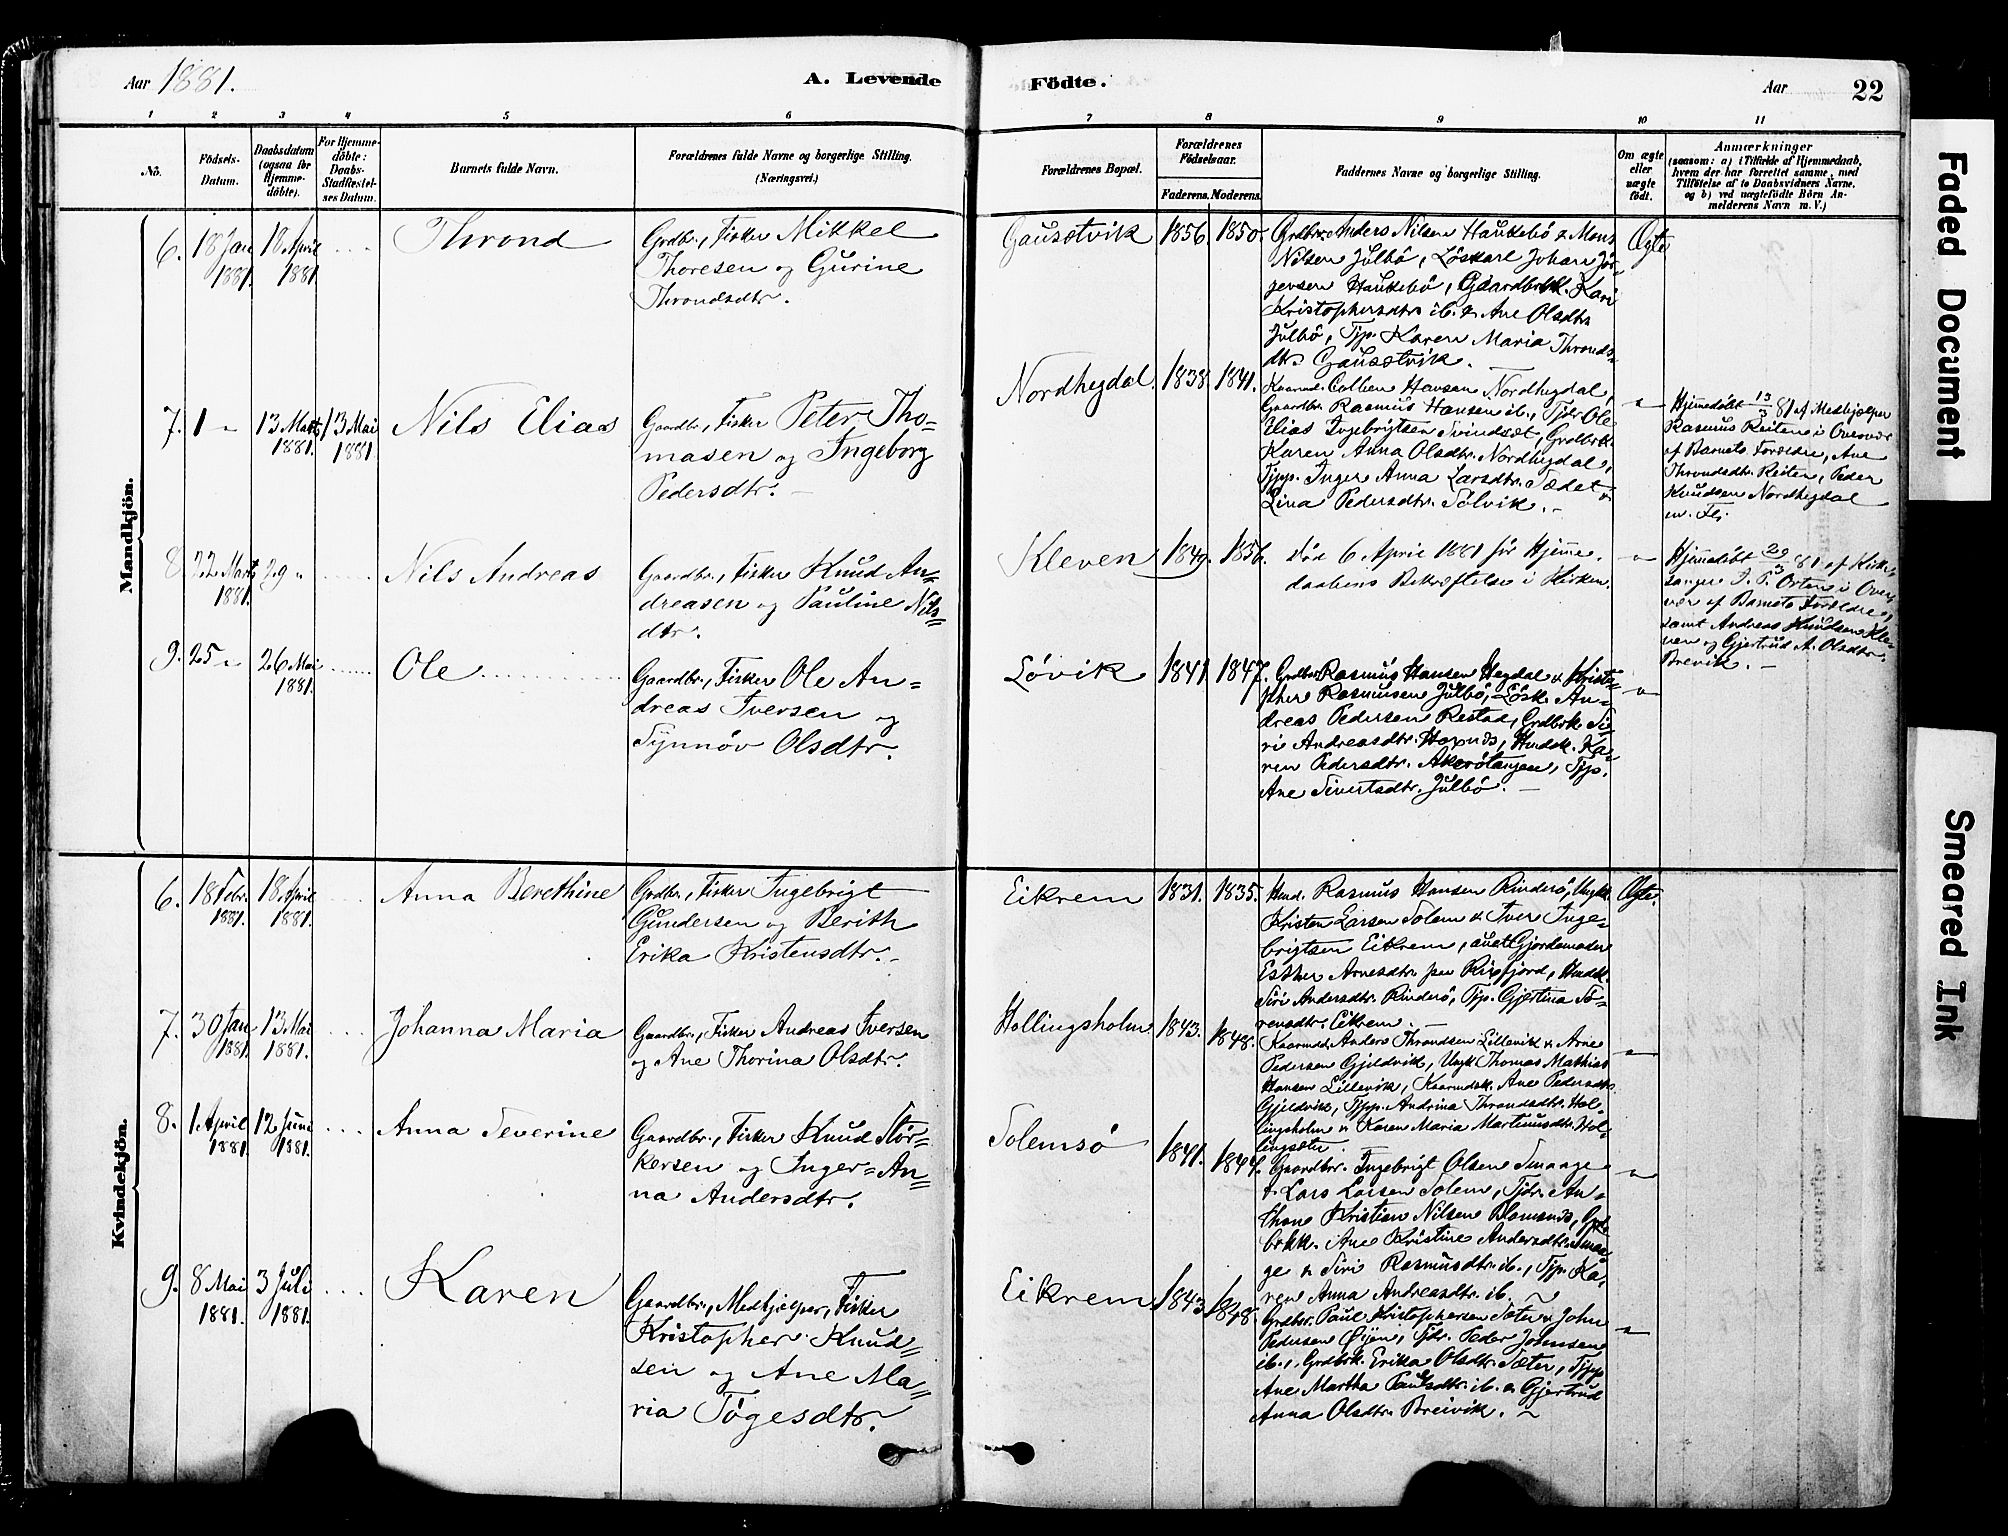 Aar 1881.
A. Levende
Födte.
Aar
22
1 2 3 4 5 6 7 8 9 10 11
No.
Födsels-
Datum.
Daabsdatum
(ogsaa for
Hjemme-
döbte).
For Hjemme-
döbte:
Daabs-
Stadfæstel-
ses Datum.
Barnets fulde Navn.
Forældrenes fulde Navne og borgerlige Stilling.
(Næringsvei.)
Forældrenes Bopæl.
Forældrenes
Födselsaar.
Faderens. Moderens.
Faddernes Navne og borgerlige Stilling.
Om ægte
eller
uægte
födt.
Anmærkninger
(saasom: a) i Tilfælde af Hjemmedaab,
hvem der har forrettet samme, med
Tilföielse af to Daabsvidners Navne,
og b) ved uægtefödte Börn An-
melderens Navn m. V.)
Mandkjön.
6. 18 Jan 1881. 18 April 1881. Thrond
Grdbr., Fisker Mikkel
Thoresen og Gurine
Throndsdtr.
Gausetvik 1856. 1850.
Grdbr. Anders Nilsen Haukebö & Mons
Nilsen Julbö, Löskarl Johan Jör-
gensen Haukebö, Gaardbrk. Kari
Kristophersdtr. ib. & Ane Olsdtr.
Julbö, Tjp. Karen Maria Thronds-
dtr. Gausetvik.
Ægte
7. 1 " 13 Marts 1881. 13 Mai 1881 Nils Elias
Gaardbr., Fisker Peter Tho-
masen og Ingeborg
Pedersdtr. –
Nordhegdal. 1838. 1841.
Kaarmd. Colben Hansen Nordhegdal,
Gaardbr. Rasmus Hansen ib., Tjdr. Ole
Elias Ingebrigtsen Svindsæt, Grdbrk.
Karen Anna Olsdtr. Nordhegdal,
Tjpp. Inger Anna Larsdtr. Sædet &
Lina Pedersdtr. Sölvik. –
"
Hjemdöbt 13/3 81 af Medhjælper
Rasmus Reiten i Overvær
af Barnets Forældre, Ane
Throndsdtr. Reiten, Peder
Knudsen Nordhegdal
m. Fl.
8. 22 Marts 1881. 29 " Nils Andreas
Gaardbr., Fisker Knud An-
dreasen og Pauline Nils-
dtr.
Kleven 1849. 1856.
död 6 April 1881 för Hjemme-
daabens Bekræftelse i Kirken.
"
Hjemdöbt 29/3 81 af Kirke-
sanger J. P. Orten i Over-
vær af Barnets Forældre,
samt Andreas Knudsen Kle-
ven og Gjertrud A. Olsdtr.
Brevik. –
9. 25 " 26 Mai 1881. Ole
Gaardbr., Fisker Ole An-
dreas Iversen og
Synnöv Olsdtr.
Lövik 1841. 1847.
Grdbr. Rasmus Hansen Hegdal & Kristo-
pher Rasmusen Julbö, Lösk. An-
dreas Pedersen Restad, Grdbrk. Si-
ri Andreasdtr. Hoxnæs, Husk. Ka-
ren Pedersdtr. Akerötangen, Tjp.
Ane Sivertsdtr. Julbö. –
"
Kvindekjön.
6. 18 Febr. 1881. 18 April 1881. Anna Berethine
Grdbr., Fisker Ingebrigt
Gundersen og Berith
Erika Kristensdtr. –
Eikrem 1831. 1835.
Husd. Rasmus Hansen Rinderö, Ungk.
Kristen Larsen Solem & Iver Inge-
brigtsen Eikrem, Gjordemoder
Esther Arnesdtr. Ripfjord, Husk.
Siri Andersdtr. Rinderö, Tjp. Gjertina Sö-
rensdtr. Eikrem. –
Ægte.
7. 30 Jan 1881. 13 Mai 1881. Johanna Maria
Gaardbr., Fisker Andreas Iversen
og Ane Thorina Olsdtr.
Hollingsholm. 1843. 1848.
Kaarmd. Anders Throndsen Lillevik & Arne
Pedersen Gjeldvik, Ungk Thomas Mathias
Hansen Lillevik, Kaarmdsk. Ane Pedersdtr.
Gjeldvik, Tjpp. Andrina Throndsdtr. Hol-
lingsholm & Karen Maria Martinusdtr. Hol-
lingsæter.
"
8. 1 April 1881. 12 Juni 1881. Anna Severine
Gaardbr., Fisker Knud Stör-
kersen og Inger-An-
na Andersdtr.
Solemsö 1841. 1844.
Gaardbr. Ingebrigt Olsen Smaage
& Lars Larsen Solem, Tjdr. An-
thon Kristian Nilsen Blomsnæs,
Ane Kristine Andersdtr. Smaa-
ge & Siri Rasmusdtr. ib., Tjp. Ka-
ren Anna Andreasdtr. ib.
"
9. 8 Mai 1881. 3 Juli 1881. Karen
Gaardbr., Medhjælper, Fisker
Kristopher Knud-
sen og Ane Ma-
ria Tögesdtr.
Eikrem 1843. 1848.
Grdbr. Paul Kristophersen Sæter & John
Pedersen Öijen, Tjdr. Peder Johnsen
ib., Grdbrk. Erika Olsdtr. Sæter, Tjpp
Ane Martha Paulsdtr. ib. & Gjertrud
Anna Olsdtr. Breivik.
"
Faded Document
Smeared Ink